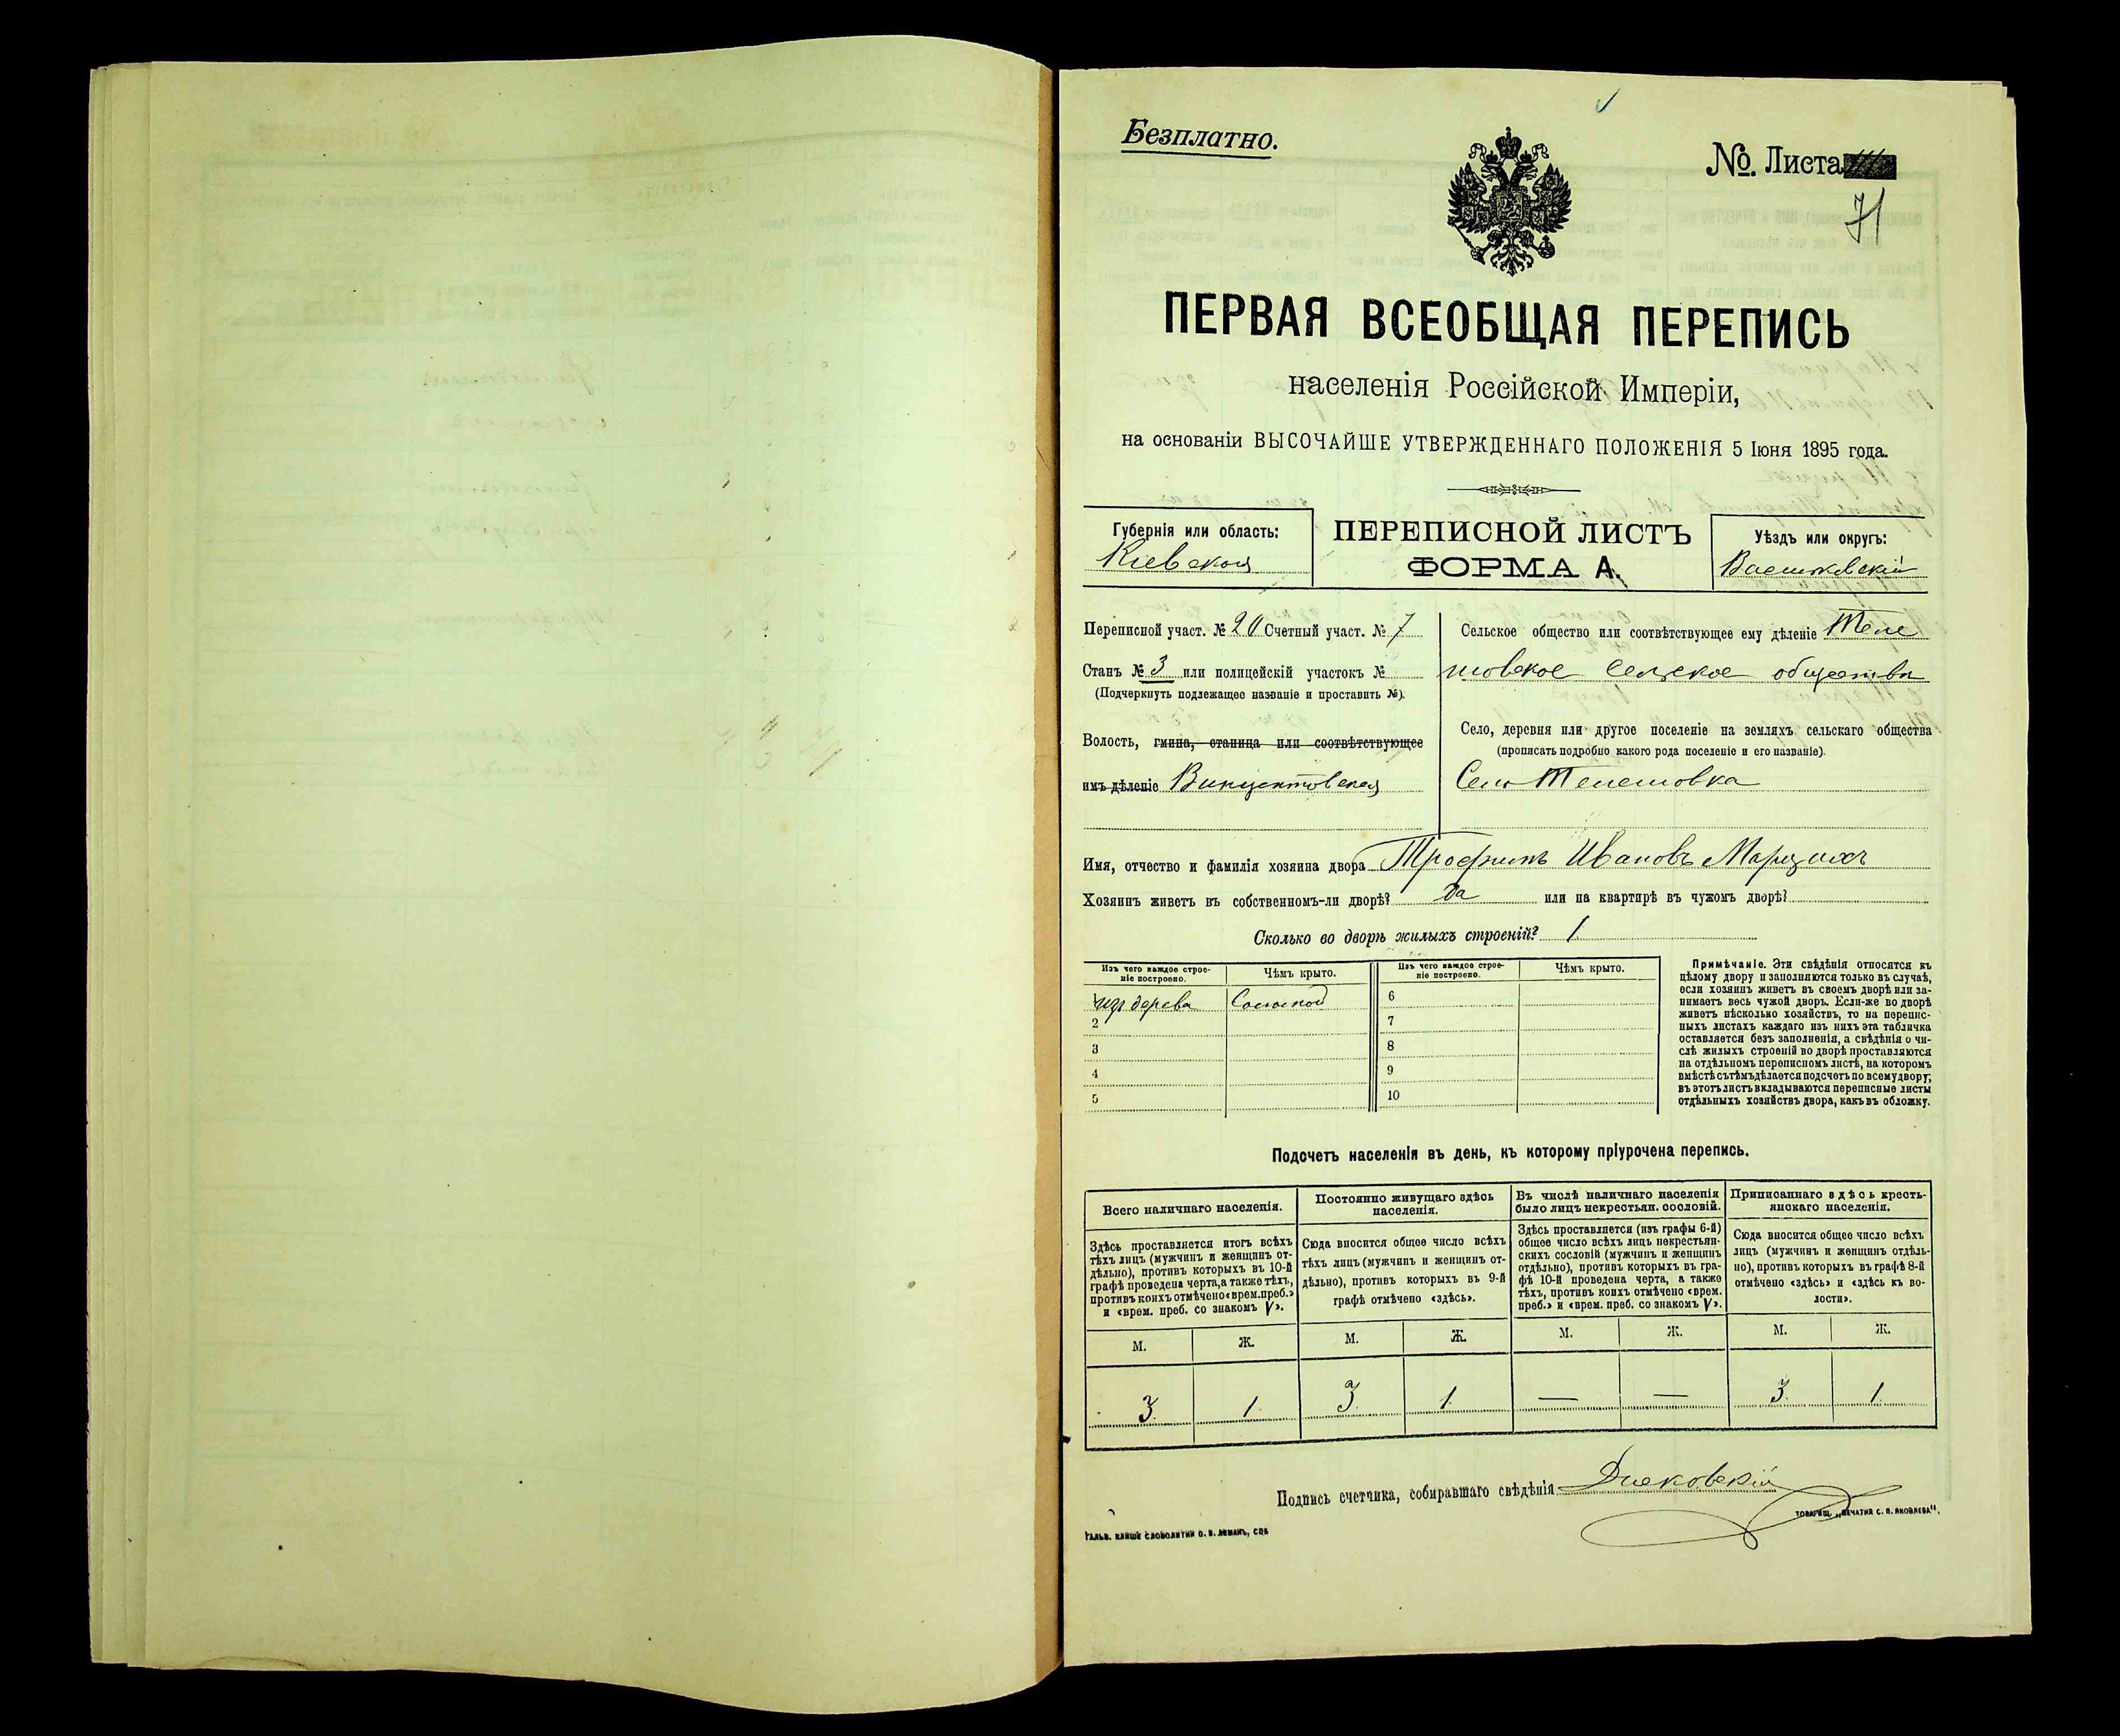 Безплатно.
№. Листа
71
ПЕРВАЯ ВСЕОБЩАЯ ПЕРЕПИСЬ
населенія Россійской Имперіи,
на основаніи ВЫСОЧАЙШЕ УТВЕРЖДЕННАГО ПОЛОЖЕНІЯ 5 Іюня 1895 года.
Губернія или область:
Кіевская
ПЕРЕПИСНОЙ ЛИСТЪ
ФОРМА А.
Уѣздъ или округъ:
Васильковскій
Переписной участ. № 20 Счетный участ. № 7
Станъ № 3 или полицейскій участокъ №
(Подчеркнуть подлежащее названіе и проставить №).
Волость, гмина, станица или соотвѣтствующее
имъ дѣленіе Винцентовская
Сельское общество или соотвѣтствующее ему дѣленіе Теле
шовское сельское общество
Село, деревня или другое поселеніе на земляхъ сельскаго общества
(прописать подробно какого рода поселеніе и его названіе).
Село Телешовка
Имя, отчество и фамилія хозяина двора Трофимъ Ивановъ
Хозяинъ живетъ въ собственномъ-ли дворѣ? да или на квартирѣ въ чужомъ дворѣ?
Сколько во дворѣ жилыхъ строеній? 1
Изъ чего каждое строе-
ніе построено.
Чѣмъ крыто.
Изъ чего каждое строе-
ніе построено.
Чѣмъ крыто.
1 изъ дерева Соломой
2
3
4
5
6
7
8
9
10
Примѣчаніе. Эти свѣдѣнія относятся къ
цѣлому двору и заполняются только въ случаѣ,
если хозяинъ живетъ въ своемъ дворѣ или за-
нимаетъ весь чужой дворъ. Если-же во дворѣ
живетъ нѣсколько хозяйствъ, то на перепис-
ныхъ листахъ каждаго изъ нихъ эта табличка
оставляется безъ заполненія, а свѣдѣнія о чи-
слѣ жилыхъ строеній во дворѣ проставляются
на отдѣльномъ переписномъ листѣ, на которомъ
вмѣстѣ съ тѣмъ дѣлается подсчетъ по всему двору;
въ этотъ листъ вкладываются переписные листы
отдѣльныхъ хозяйствъ двора, какъ въ обложку.
Подочетъ населенія въ день, къ которому пріурочена перепись.
Всего наличнаго населенія.
Здѣсь проставляется итогъ всѣхъ
тѣхъ лицъ (мужчинъ и женщинъ от-
дѣльно), противъ которыхъ въ 10-й
графѣ проведена черта, а также тѣхъ,
противъ коихъ отмѣчено «врем. преб.»
и «врем. преб. со знакомъ V».
М. Ж.
3 1
Постоянно живущаго здѣсь
населенія.
Сюда вносится общее число всѣхъ
тѣхъ лицъ (мужчинъ и женщинъ от-
дѣльно), противъ которыхъ въ 9-й
графѣ отмѣчено «здѣсь».
М. Ж.
3 1
Въ числѣ наличнаго населенія
было лицъ некрестьян. сословій.
Здѣсь проставляется (изъ графы 6-й)
общее число всѣхъ лицъ некрестьян-
скихъ сословій (мужчинъ и женщинъ
отдѣльно), противъ которыхъ въ гра-
фѣ 10-й проведена черта, а также
тѣхъ, противъ коихъ отмѣчено «врем.
преб.» и «врем. преб. со знакомъ V».
М. Ж.
— —
Приписаннаго здѣсь кресть-
янскаго населенія.
Сюда вносится общее число всѣхъ
лицъ (мужчинъ и женщинъ отдѣль-
но), противъ которыхъ въ графѣ 8-й
отмѣчено «здѣсь» и «здѣсь въ во-
лости».
М. Ж.
3 1
Подпись счетчика, собиравшаго свѣдѣнія
ГАЛЬВ. КЛИШЕ СЛОВОЛИТНИ О. И. ЛЕМАНЪ, СПБ
ТОВАРИЩ. „ПЕЧАТНЯ С. П. ЯКОВЛЕВА".